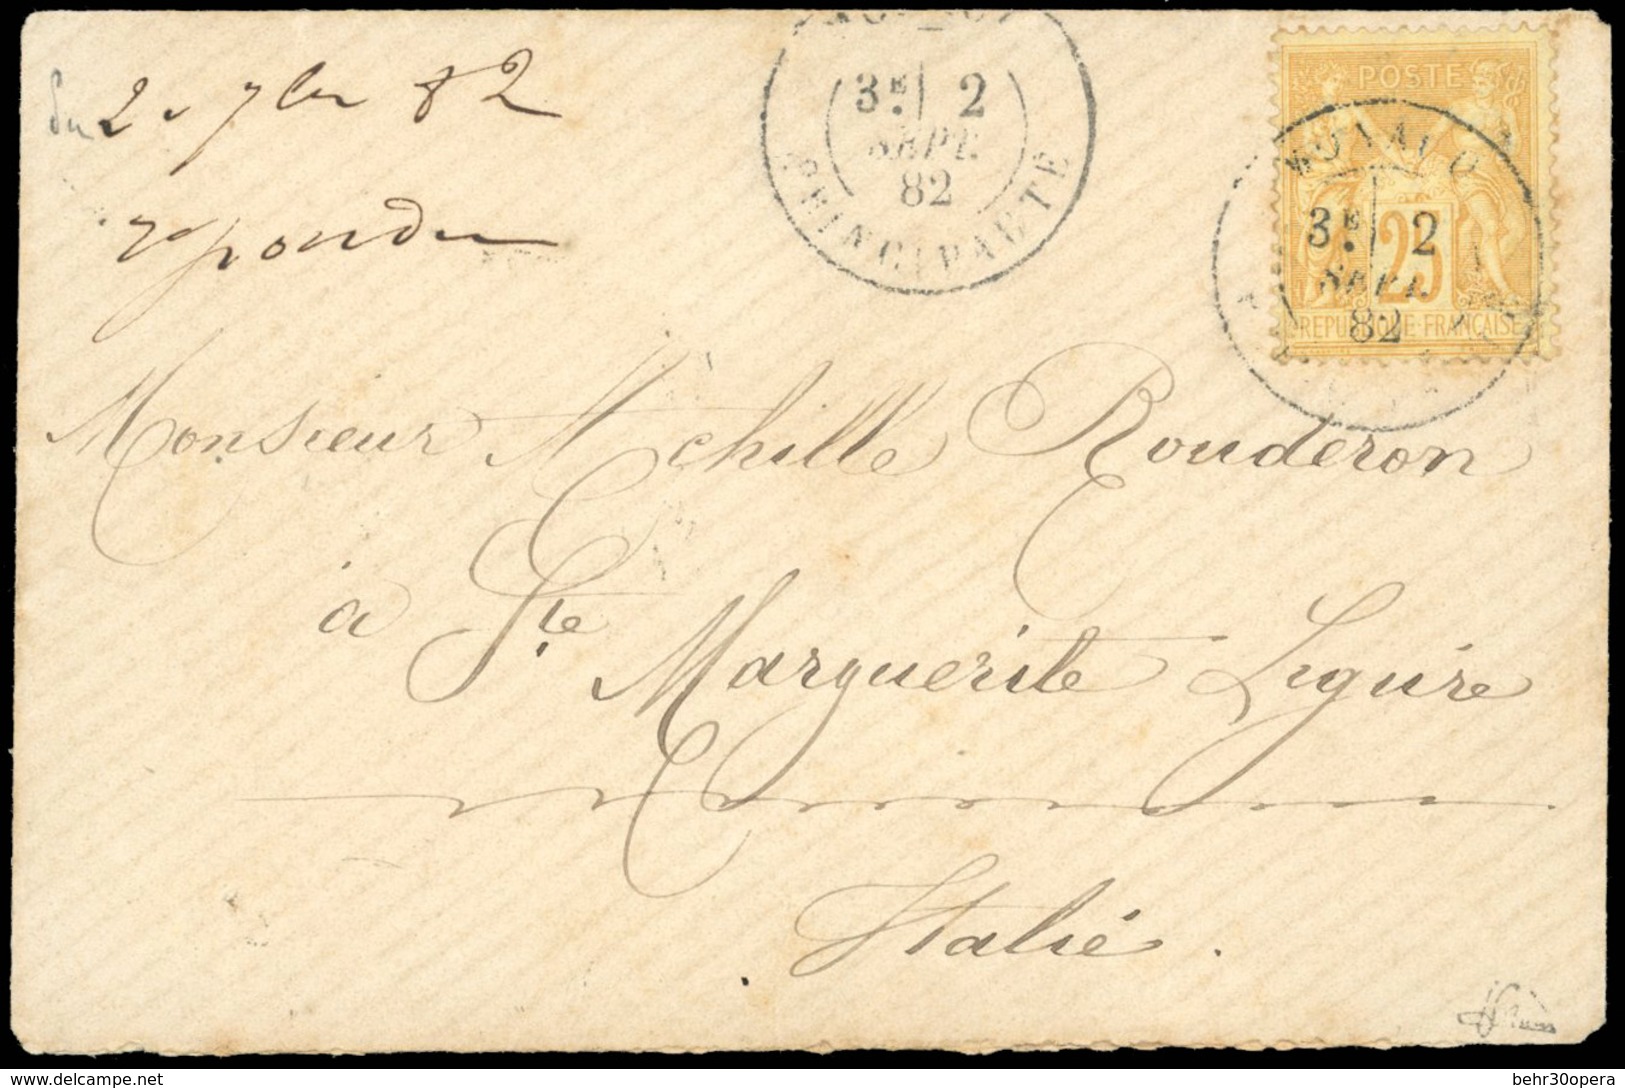 du 2 7bre 82
répondu
3E. 2
SEPT.
82
PRINCIPAUTE
POSTE
MONACO
3E. 2
25
SEPT.
82
REPUBLIQUE FRANÇAISE
Monsieur Achille Rouderon
à Ste Marguerite Ligure
Italie.
delcampe.net
behr30opera